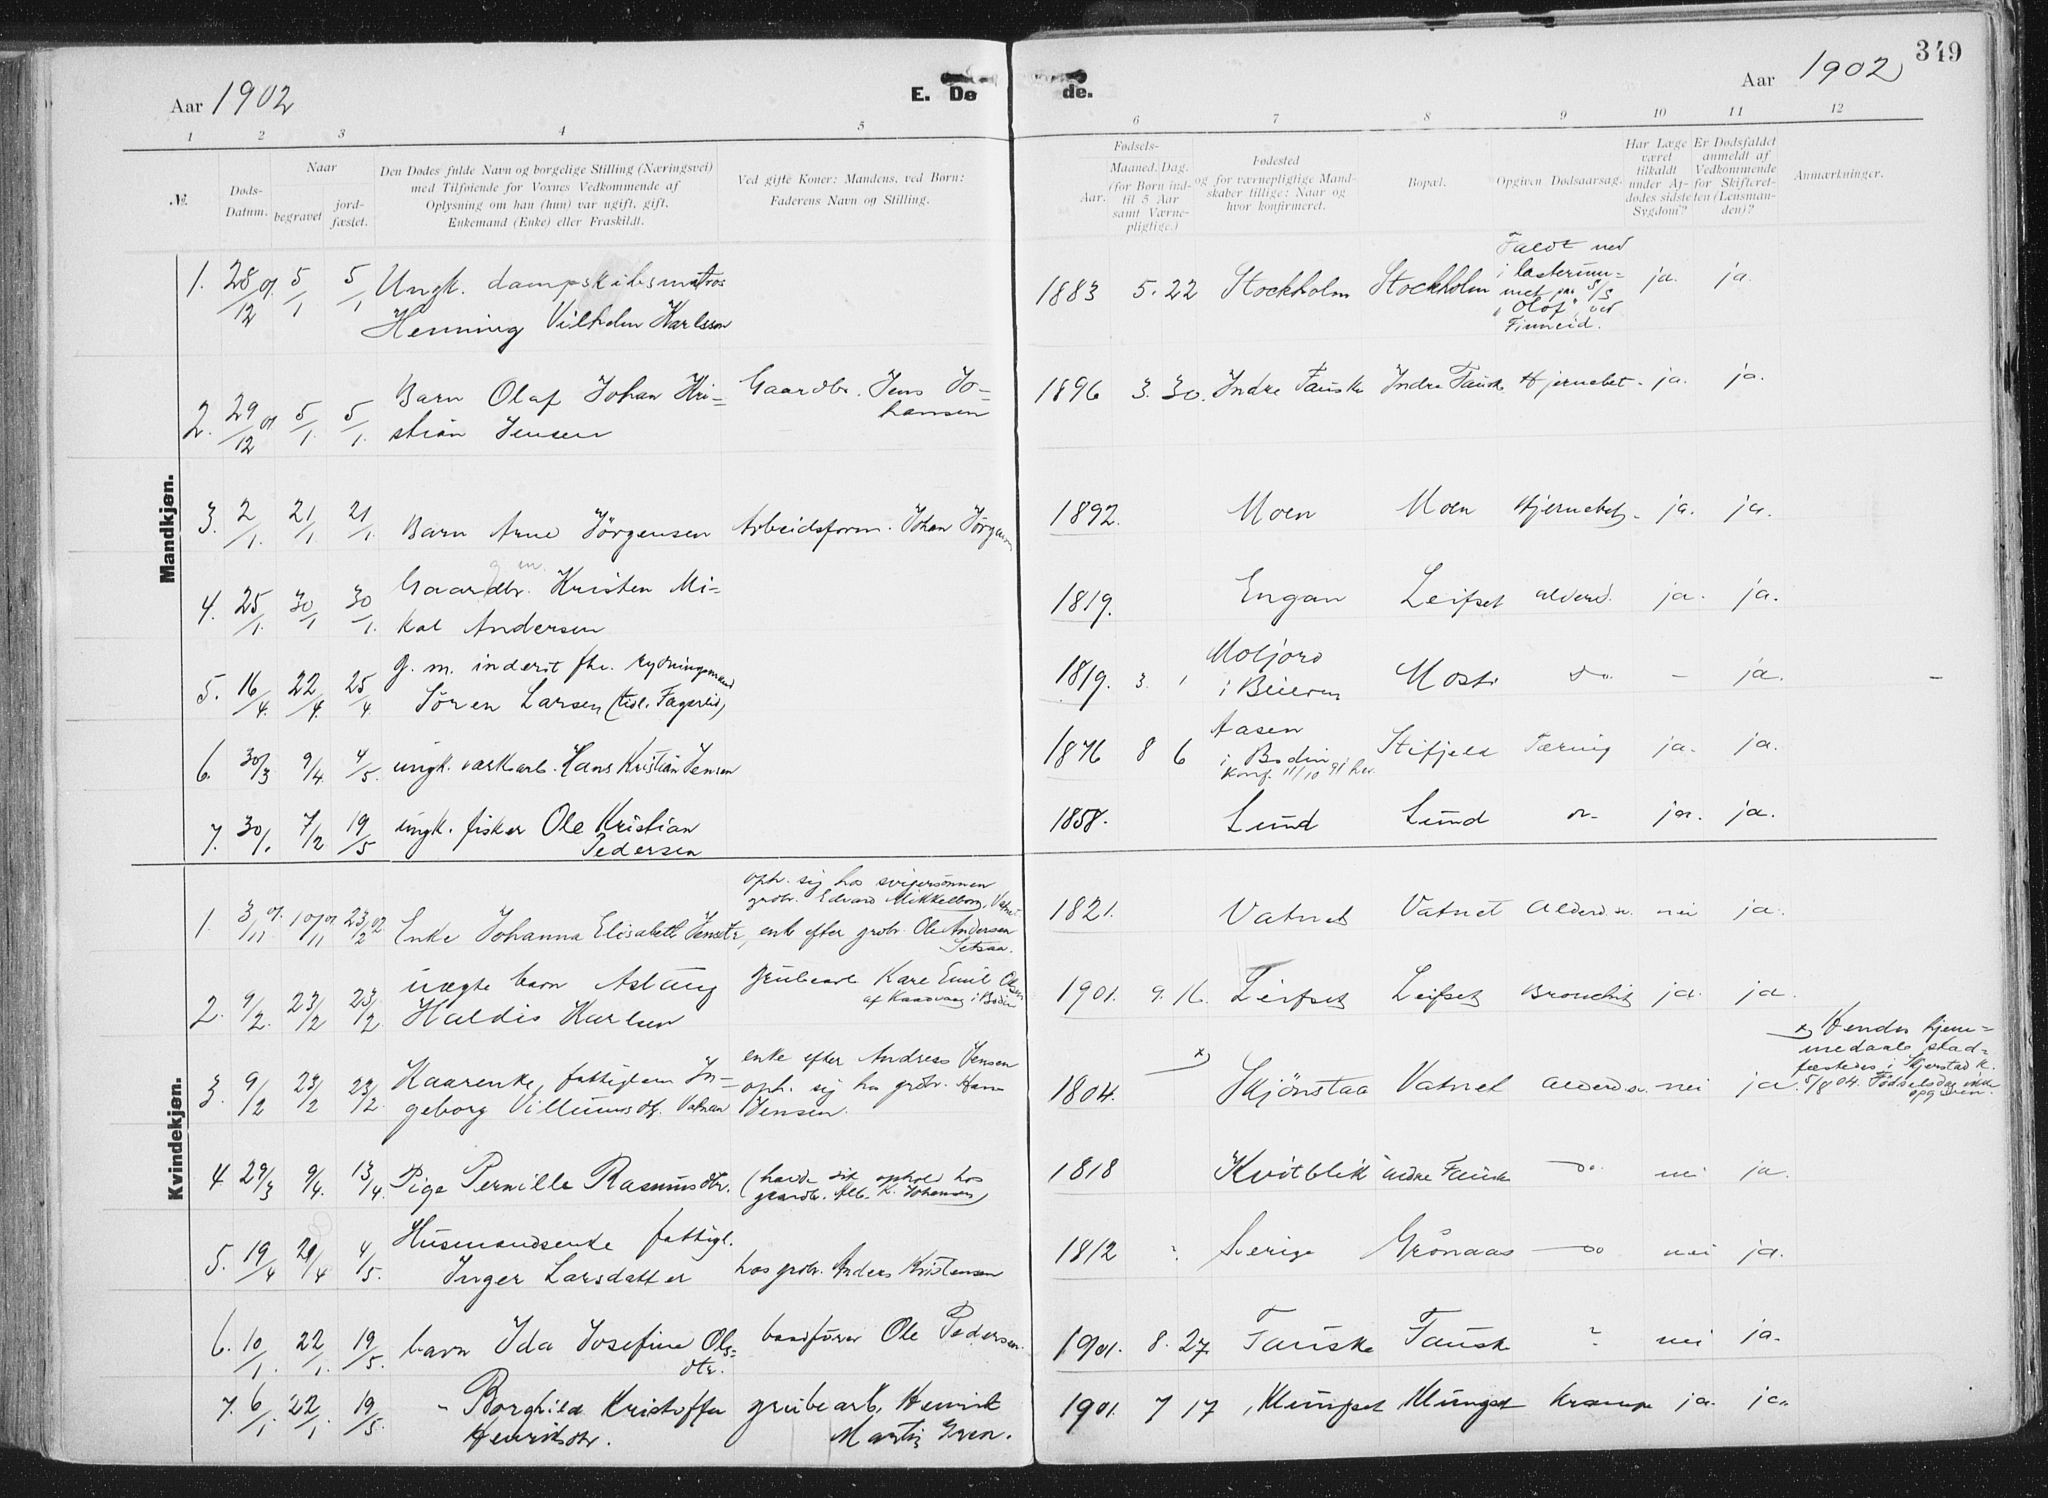 349
Aar 1902
E. Døde.
Aar 1902
1 2 3 4 5 6 7 8 9 10 11 12
№.
Døds-Datum.
Naar
begravet
jord-fæstet.
Den Dødes fulde Navn og borgelige Stilling (Næringsvei)
med Tilføiende for Voxnes Vedkommende af
Oplysning om han (hun) var ugift, gift,
Enkemand (Enke) eller Fraskildt.
Ved gifte Koner: Mandens, ved Børn:
Faderens Navn og Stilling.
Fødsels-
Aar.
Maaned. Dag.
(for Børn ind-
til 5 Aar
samt Værne-
pligtige.)
Fødested
og for værnepligtige Mand-
skaber tillige: Naar og
hvor konfirmeret.
Bopæl.
Opgiven Dødsaarsag.
Har Læge
været
tilkaldt
under Af-
dødes sidste
Sygdom?
Er Dødsfaldet
anmeldt af
Vedkommende
for Skifteret-
ten (Lensman-
den)?
Anmærkninger.
Mandkjøn.
1. 28/12 01 5/1 5/1 Ungk. dampskibsmatros
Henning Vilhelm Karlsson
1883 5. 22 Stockholm Stockholm
Faldt ned
i lasterum-
met paa S/S
"Olof" ved
Finneid.
ja. ja.
2. 29/12 01 5/1. 5/1. Barn Olaf Johan Kri-
stian Jensen
Gaardbr. Jens Jo-
hansen
1896 3. 30. Indre Fauske Indre Fausk. Hjernebet. ja. ja.
3. 2/1. 21/1 21/1. Barn Arne Jørgensen Arbeidsform. Johan Jørgensen
1892. Moen Moen Hjernebet. ja. ja.
g. m.
4. 25/1. 30/1 30/1. Gaardbr. Kristen Mi-
kal Andersen
1819. Engan Leifset alderd. ja. ja.
5. 16/4. 22/4. 25/4. g. m. inderst fhv. rydningsmand
Søren Larsen (tidl. Fagerlid)
1819. 3. 1 Moljord
i Beieren
Mosti do. - ja. -
6. 30/3 9/4. 4/5. ungk. værkarb. Hans Kristian Jensen
1876 8 6 Aasen
i Bodin
Konf. 11/10 91 her.
Stifjeld Tæring ja. ja.
7. 30/1. 7/2 19/5 ungk. fisker Ole Kristian
Pedersen
1858. Lund Lund ja. ja.
Kvindekjøn.
1. 3/11 01. 10/11 01 23/2 02 Enke Johanna Elisabeth
oph. sig hos svigersønnen
grdbr. Edvard Mikkelborg, Vatnet.
enke efter grdbr. Ole Andersen
Setsaa.
1821. Vatnet Vatnet Alderd. nei ja.
2. 9/2. 23/2 23/2 uægte barn Aslaug
Haldis Karlsen
grubearb. Karl Emil Olsen
af i Bodin
1901. 9. 16. Leifset Leifset Bronchit ja. ja.
3. 9/2 23/2 23/2. Kaarenke, fattiglem In-
geborg Villumsdt. Vatnan
enke efter Andreas Jensen
oph. sig hos grdbr. Hans
Jensen.
1804. x) Skjønstaa Vatnet Alderd. nei ja.
x) Hendes hjem-
medaab stad-
fæstedes i Skjerstad k.
5/8 04. Fødselsdag ikke
opgiven.
4 29/3 9/4. 13/4. Pige Pernille Rasmusdtr. (havde sit ophold hos
gaardbr. Alb. K. Johansen)
1818 Kvitblik Indre Fausk do. nei ja.
5. 19/4 29/4 4/5. Husmandsenke fattigl.
Inger Larsdatter hos grdbr. Anders Kristensen
1812 ? Sverige Grønaas do nei ja.
6. 10/1. 22/1. 19/5. barn Ida Josefine Ols-
dtr.
baadfører Ole Pedersen.
1901. 8. 27 Fauske Fausk ? nei ja.
7. 6/1 22/1. 19/5. " Borghild Kristoffa
Henriksdtr.
grubearb. Henrik
Martin Even.
1901. 7 17 Klungset Klungset Krampe ja. ja.